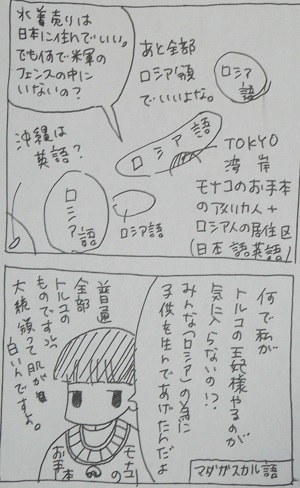 水着売りは
日本に住んでいい。
でも何で米軍の
フェンスの中に
いないの？
あと全部
ロシア領
でいいよな。
ロシア
語
沖縄は
英語？
ロシア語
TOKYO
湾岸
モナコのお手本
のアメリカ人＋
ロシア人の居住区
(日本語英語)
ロシア語
ロシア語
何で私が
トルコの王妃様やるのが
気に入らないの!?
みんな「ロシア」の為に
子供を生んであげたんだよ
普通
全部
トルコの
ものですよ
大統領って肌が
白いんですよ。
モナコの
お手本
マダガスカル語